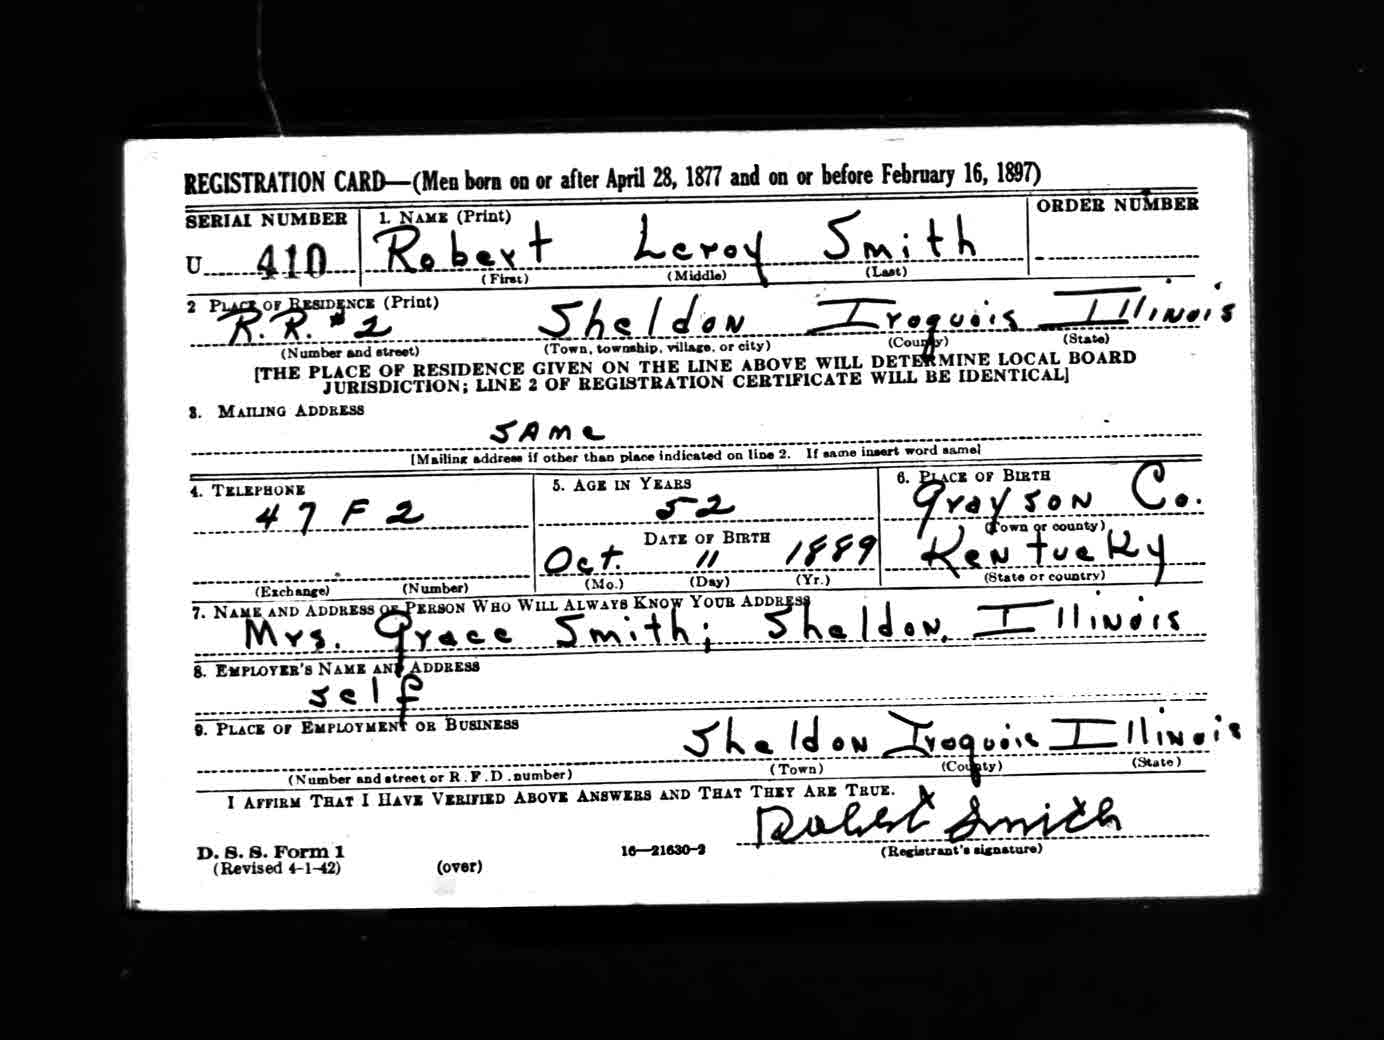 REGISTRATION CARD—(Men born on or after April 28, 1877 and on or before February 16, 1897)
SERIAL NUMBER 1. NAME (Print) ORDER NUMBER
U 410 Robert Leroy Smith
(First) (Middle) (Last)
2 PLACE OF RESIDENCE (Print)
R. R. #2 Sheldon Iroquois Illinois
(Number and street) (Town, township, village, or city) (County) (State)
[THE PLACE OF RESIDENCE GIVEN ON THE LINE ABOVE WILL DETERMINE LOCAL BOARD
JURISDICTION; LINE 2 OF REGISTRATION CERTIFICATE WILL BE IDENTICAL]
3. MAILING ADDRESS
SAme
[Mailing address if other than place indicated on line 2. If same insert word same]
4. TELEPHONE 5. AGE IN YEARS 6. PLACE OF BIRTH
47 F 2 52 Grayson Co.
(Town or county)
DATE OF BIRTH
Oct. 11 1889 Kentucky
(Exchange) (Number) (Mo.) (Day) (Yr.) (State or country)
7. NAME AND ADDRESS OF PERSON WHO WILL ALWAYS KNOW YOUR ADDRESS
Mrs. Grace Smith; Sheldon, Illinois
8. EMPLOYER'S NAME AND ADDRESS
self
9. PLACE OF EMPLOYMENT OR BUSINESS
Sheldon Iroquois Illinois
(Number and street or R. F. D. number) (Town) (County) (State)
I AFFIRM THAT I HAVE VERIFIED ABOVE ANSWERS AND THAT THEY ARE TRUE.
Robert Smith
D. S. S. Form 1 16—21630-2 (Registrant's signature)
(Revised 4-1-42) (over)